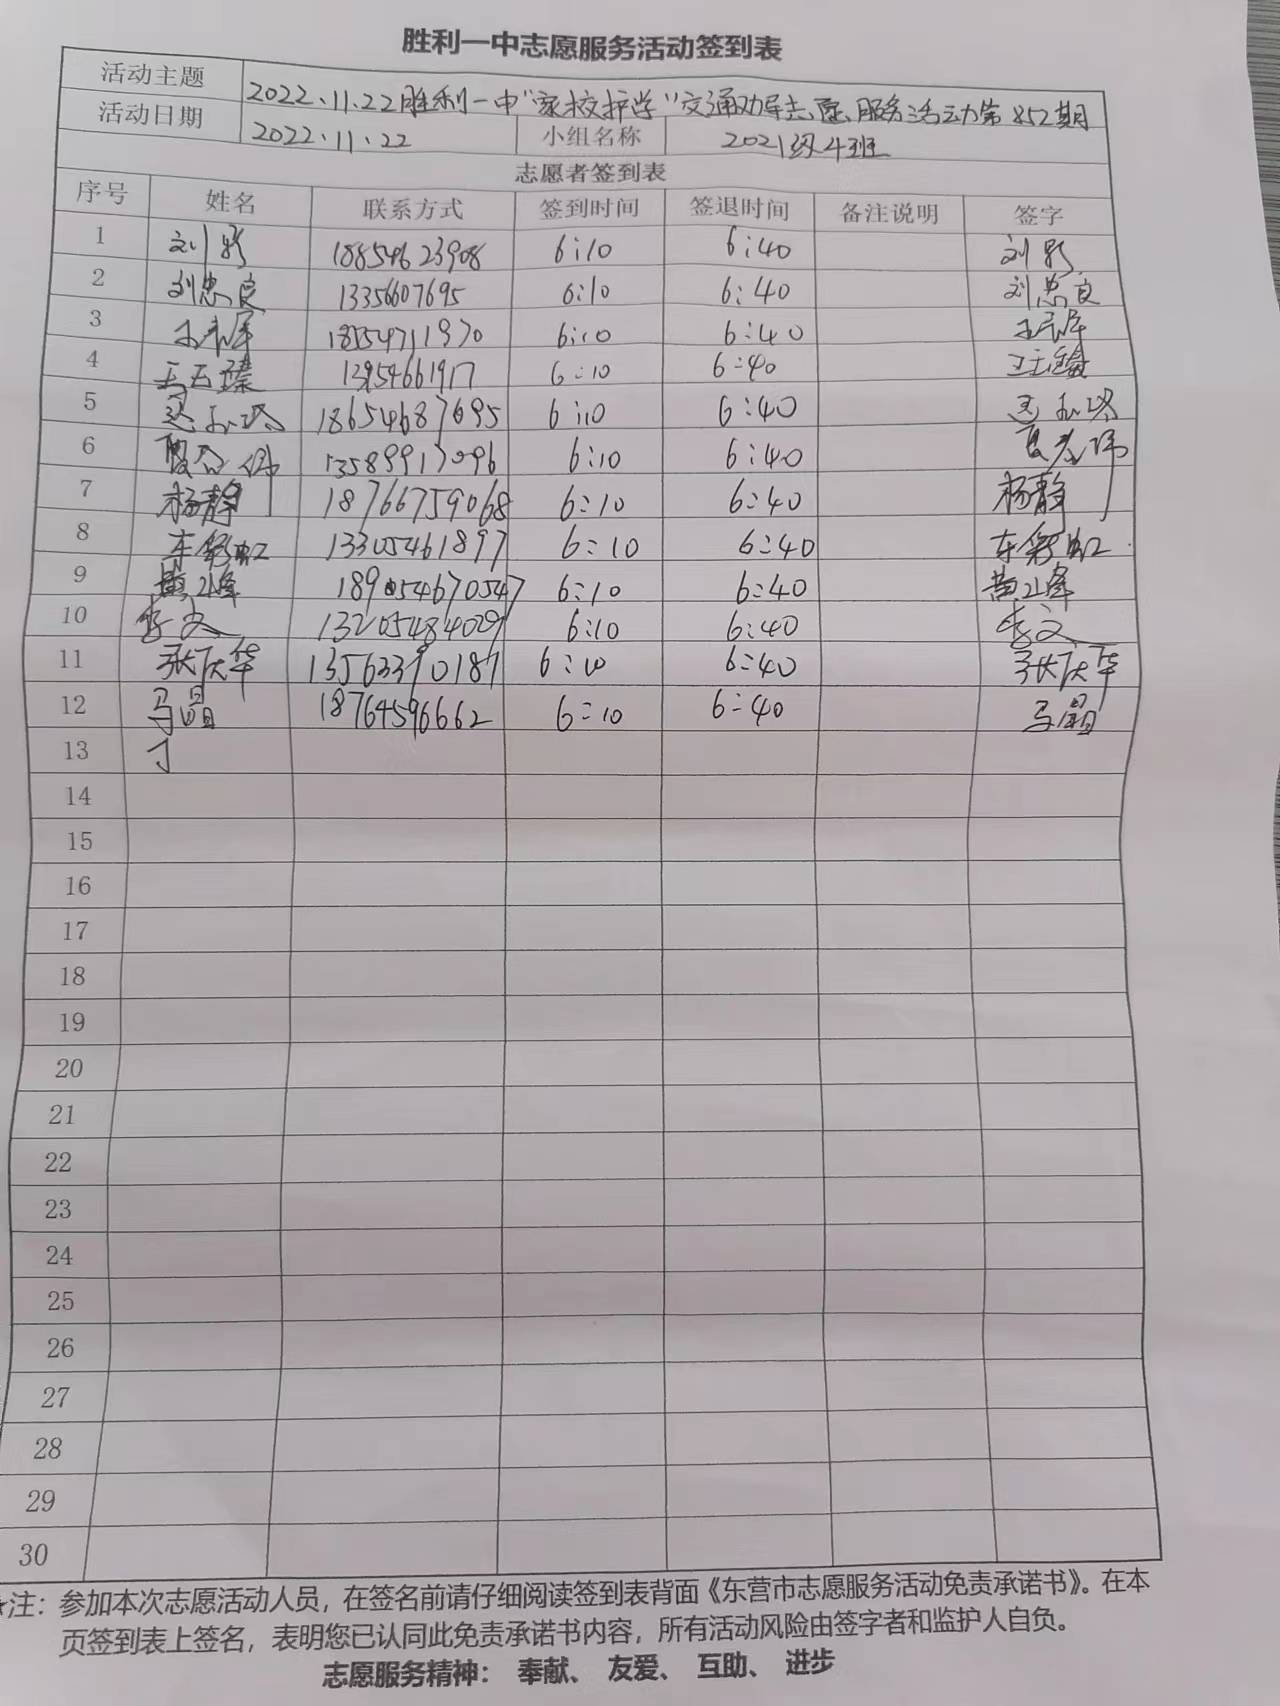 胜利一中志愿服务活动签到表
活动主题 2022.11.22胜利一中"家校护学"交通劝导志愿服务活动第852期
活动日期 2022.11.22 小组名称 2021级4班
志愿者签到表
序号 姓名 联系方式 签到时间 签退时间 备注说明 签字
1 刘彩 18854623908 6:10 6:40 刘彩
2 刘忠良 13356607695 6:10 6:40 刘忠良
3 18254711970 6:10 6:40
4 13954661917 6:10 6:40
5 18654687695 6:10 6:40
6 6:10 6:40
7 杨静 18766759068 6:10 6:40 杨静
8 车彩虹 13305461897 6:10 6:40 车彩虹
9 黄山峰 189054670547 6:10 6:40 黄山峰
10 李文 13205484029 6:10 6:40 李文
11 张庆华 13563390187 6:10 6:40 张庆华
12 马晶 18764596662 6:10 6:40 马晶
13
14
15
16
17
18
19
20
21
22
23
24
25
26
27
28
29
30
注：参加本次志愿活动人员，在签名前请仔细阅读签到表背面《东营市志愿服务活动免责承诺书》。在本
页签到表上签名，表明您已认同此免责承诺书内容，所有活动风险由签字者和监护人自负。
志愿服务精神： 奉献、 友爱、 互助、 进步